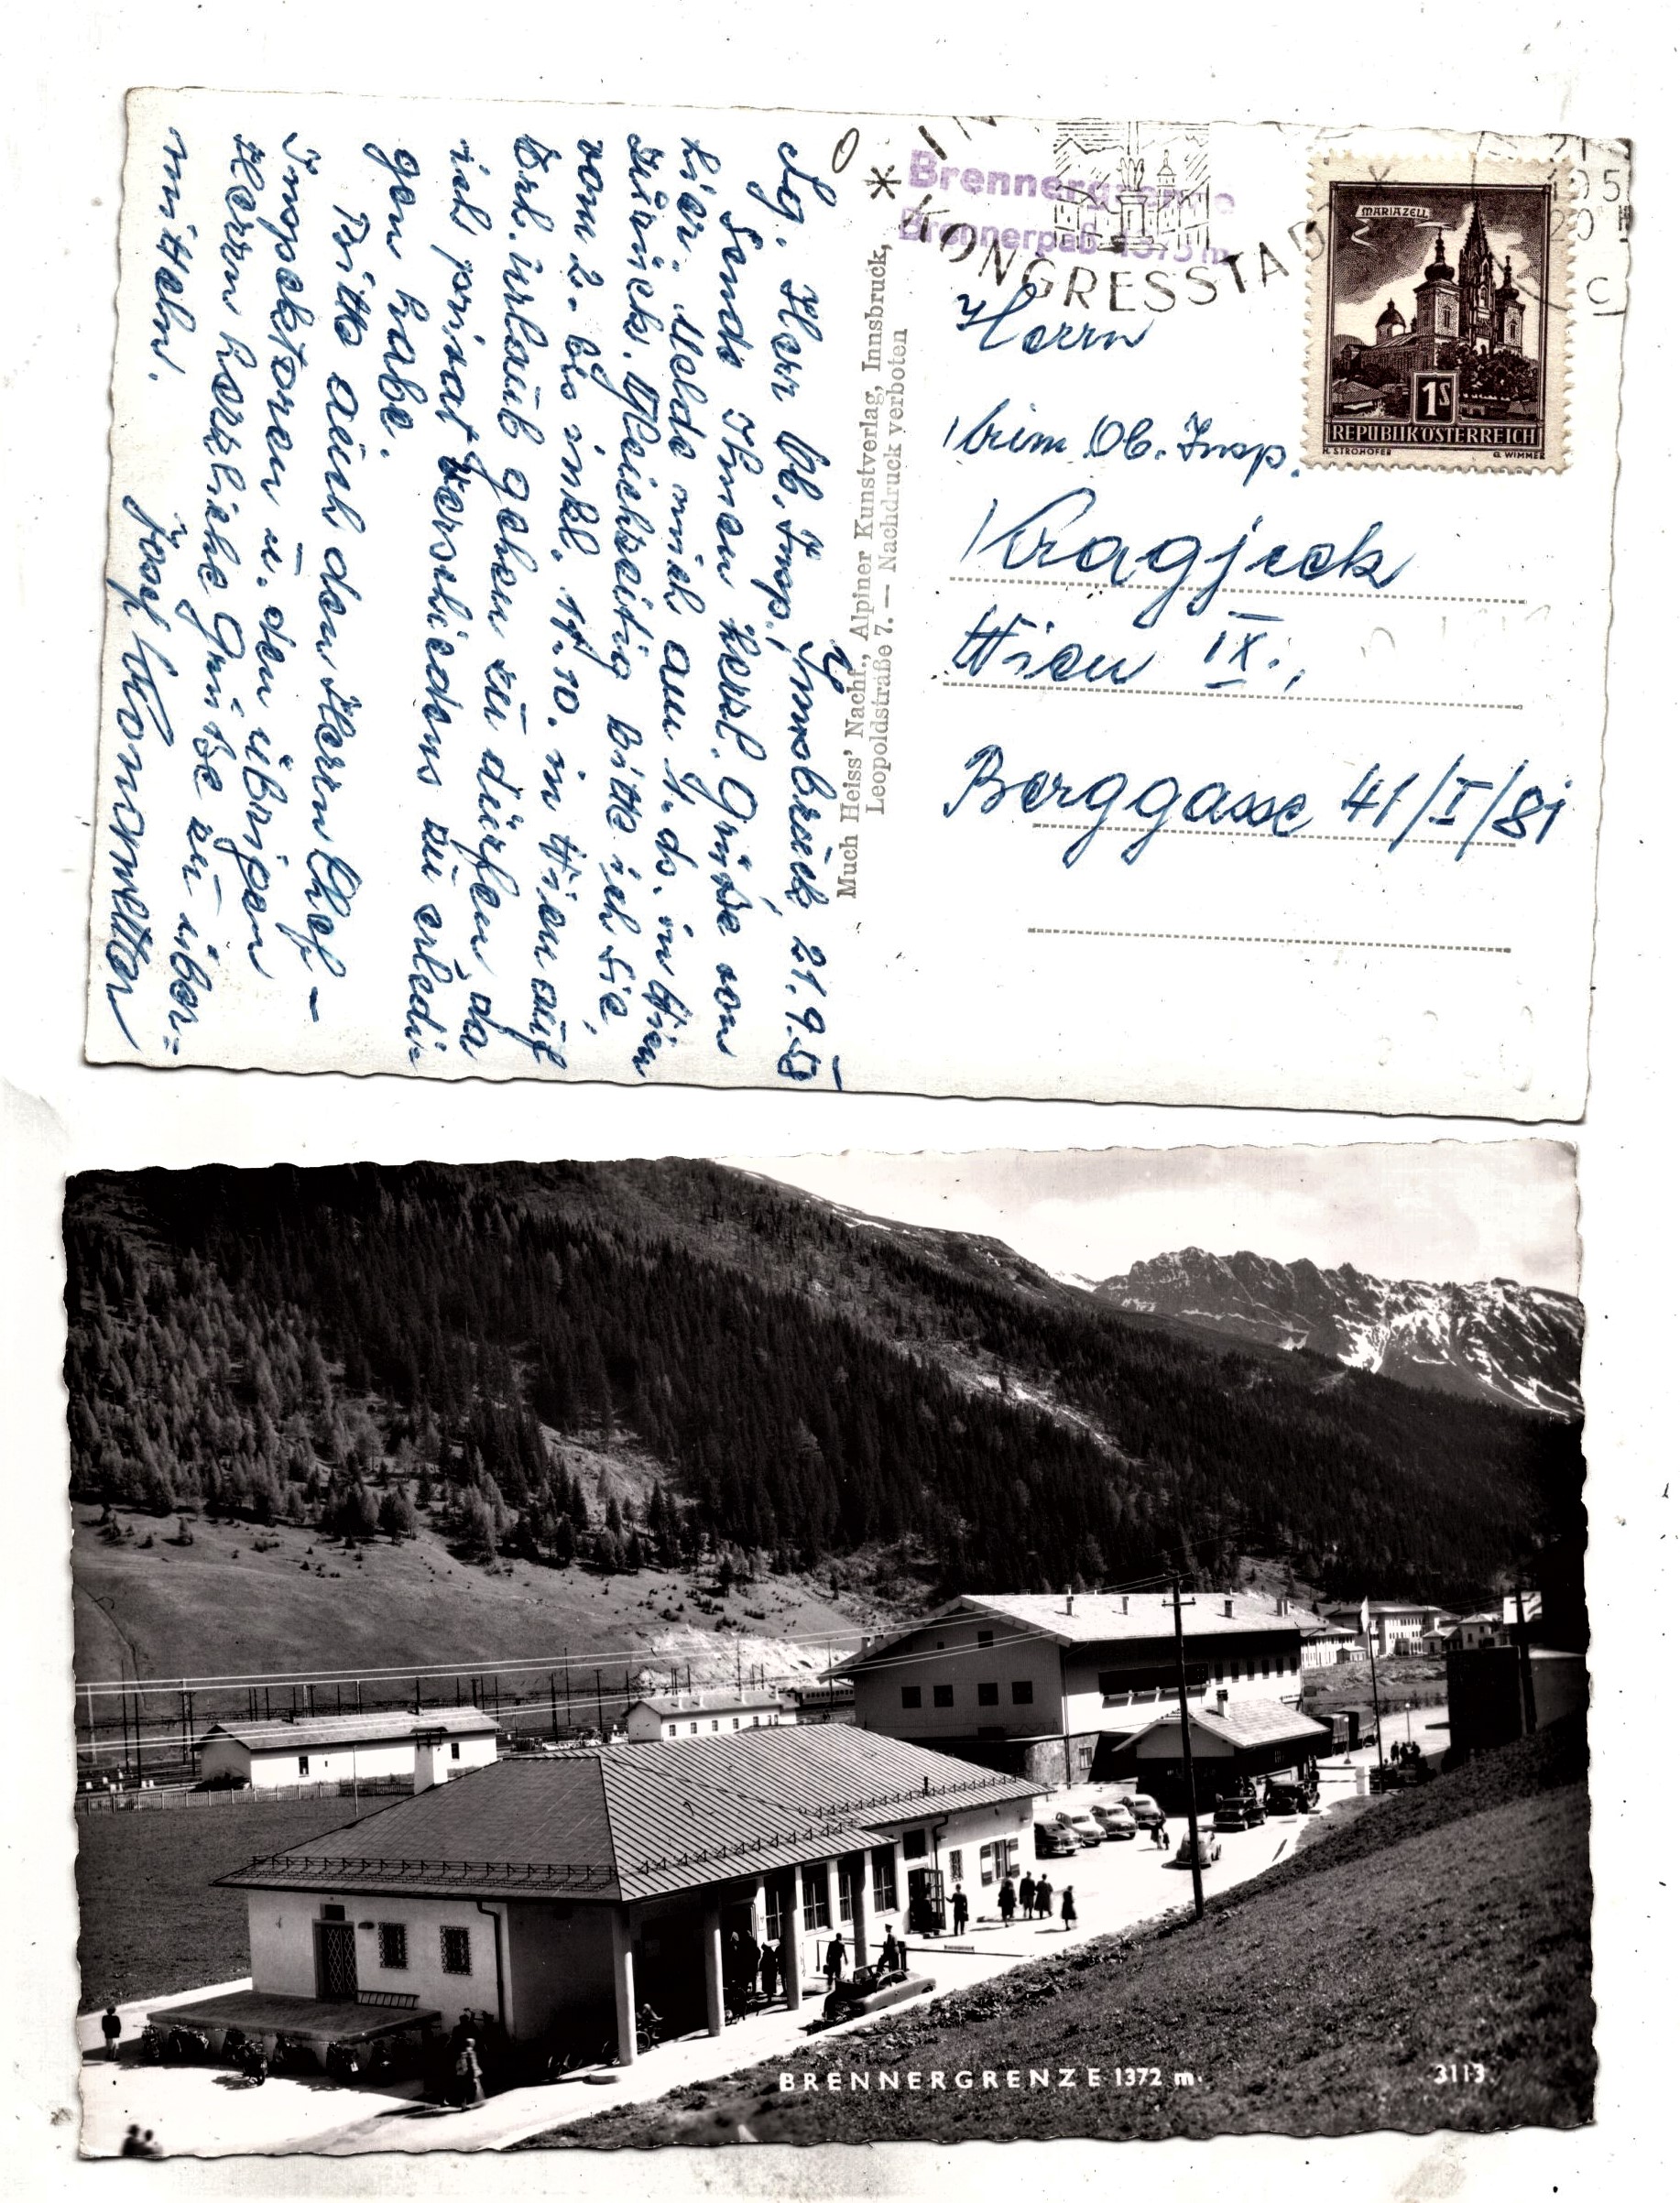 Innsbruck, 21.9.59
Sg. Herr Ob. Insp.,
Sende Ihnen herzl. Grüße von
hier. Melde mich am 1. ds. in Wien
zurück. Gleichzeitig bitte ich Sie,
vom 2. bis inkl. 17.10. in Wien auf
Erl. urlaub gehen zu dürfen, da
ich privat Verschiedens zu erledi-
gen habe.
Bitte auch den Herrn Chef-
Inspektoren u. den übrigen
Herrn herzliche Grüße zu über=
mitteln.
Josef
Much Heiss' Nachf., Alpiner Kunstverlag, Innsbruck,
Leopoldstraße 7. — Nachdruck verboten
* IN
KONGRESSTAD
Brennergrenze
Brennerpaß 1375 m
21
195
20
C
MARIAZELL
1S
REPUBLIK ÖSTERREICH
H. STROHOFER G. WIMMER
Herrn
Krim. Ob. Insp.
Kragjek
Wien IX.,
Berggasse 41/I/81
BRENNERGRENZE 1372 m.
3113